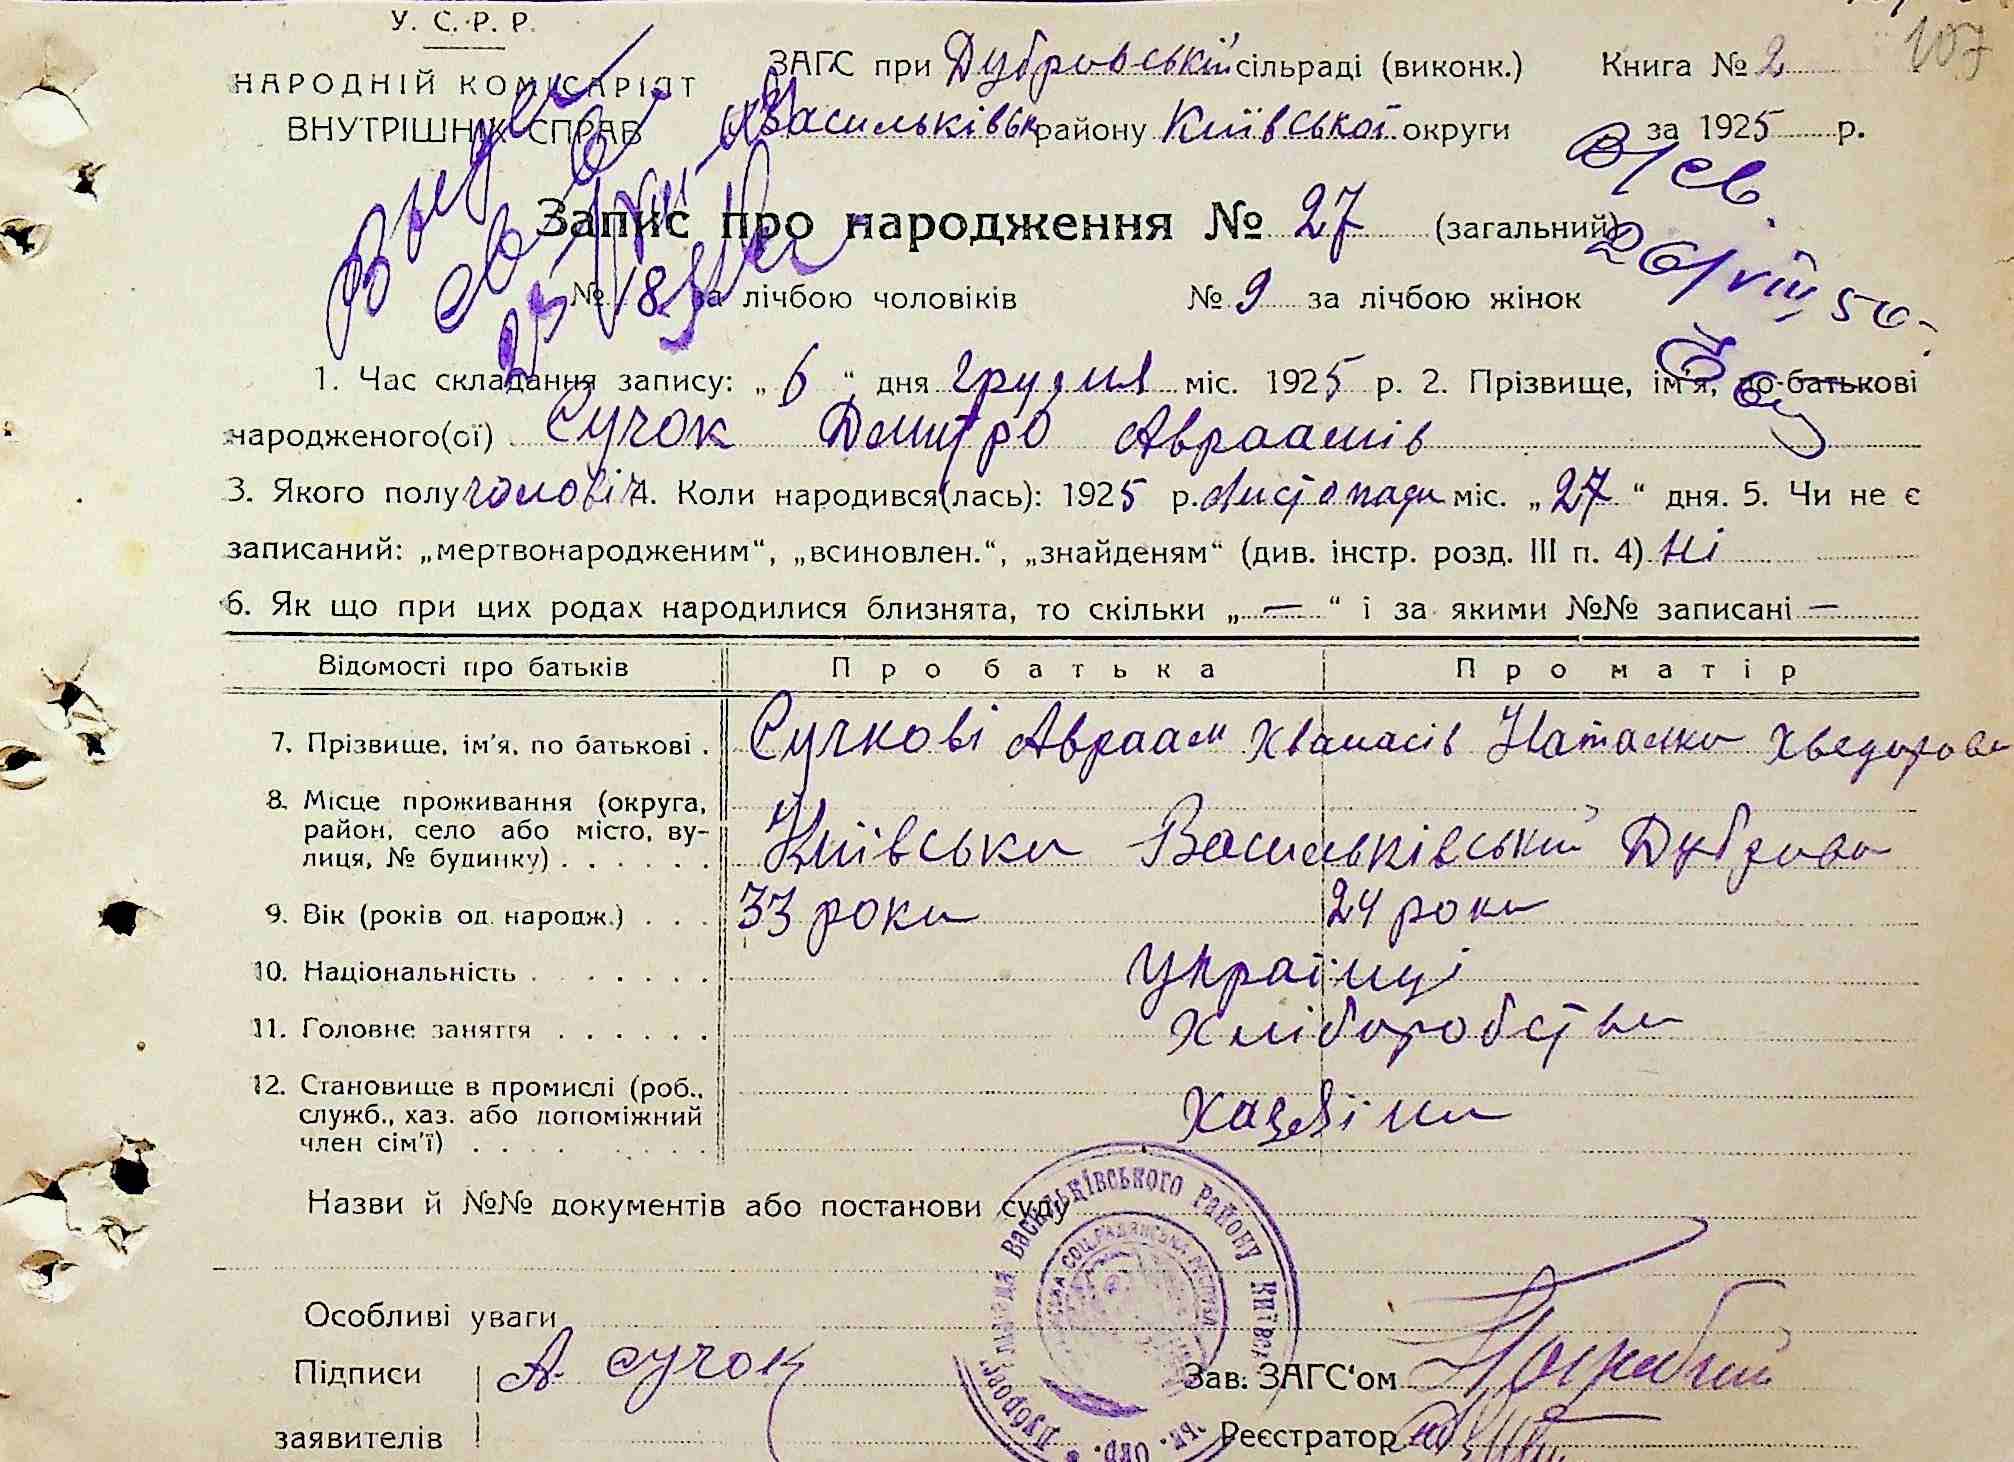 107
У. С. Р. Р.
НАРОДНІЙ КОМІСАРІЯТ
ВНУТРІШНІХ СПРАВ
ЗАГС при Дубровській сільраді (виконк.) Книга № 2
Васильківськ району Київської округи за 1925 р.
В/св.
26/VIII 56.
Запис про народження № 27 (загальний)
№ 18 за лічбою чоловіків № 9 за лічбою жінок
1. Час складання запису: „ 6 “ дня грудня міс. 1925 р. 2. Прізвище, ім'я, по-батькові
народженого(ої) Сучок Дмитро Авраамів
3. Якого полу чоловіч 4. Коли народився(лась): 1925 р. Листопада міс. „ 27 “ дня. 5. Чи не є
записаний: „мертвонародженим“, „всиновлен.“, „знайденям“ (див. інстр. розд. III п. 4) Ні
6. Як що при цих родах народилися близнята, то скільки „ — “ і за якими №№ записані —
Відомості про батьків Про батька Про матір
7. Прізвище, ім'я, по батькові . Сучкові Авраам Хванасів Наталка Хведорова
8. Місце проживання (округа,
район, село або місто, ву-
лиця, № будинку) . . . . . . Київська Васильківський Дуброва
9. Вік (років од народж.) . . . 33 роки 24 роки
10. Національність . . . . . . . Українці
11. Головне заняття . . . . . . Хліборобства
12. Становище в промислі (роб.,
служб., хаз. або допоміжний
член сім'ї) . . . . . . . . . Хазяїни
Назви й №№ документів або постанови суду
Особливі уваги
Підписи А. Сучок Зав. ЗАГС'ом
заявителів Реєстратор
Васильківського району Київськ. окр.